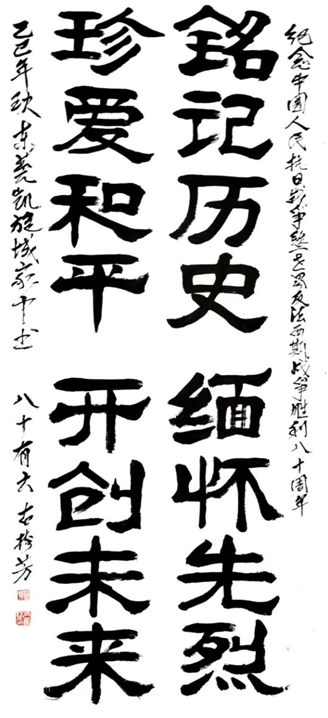 纪念中国人民抗日战争暨世界反法西斯战争胜利八十周年
铭记历史 缅怀先烈
珍爱和平 开创未来
乙巳年秋东莞凯旋城家中书 八十有六